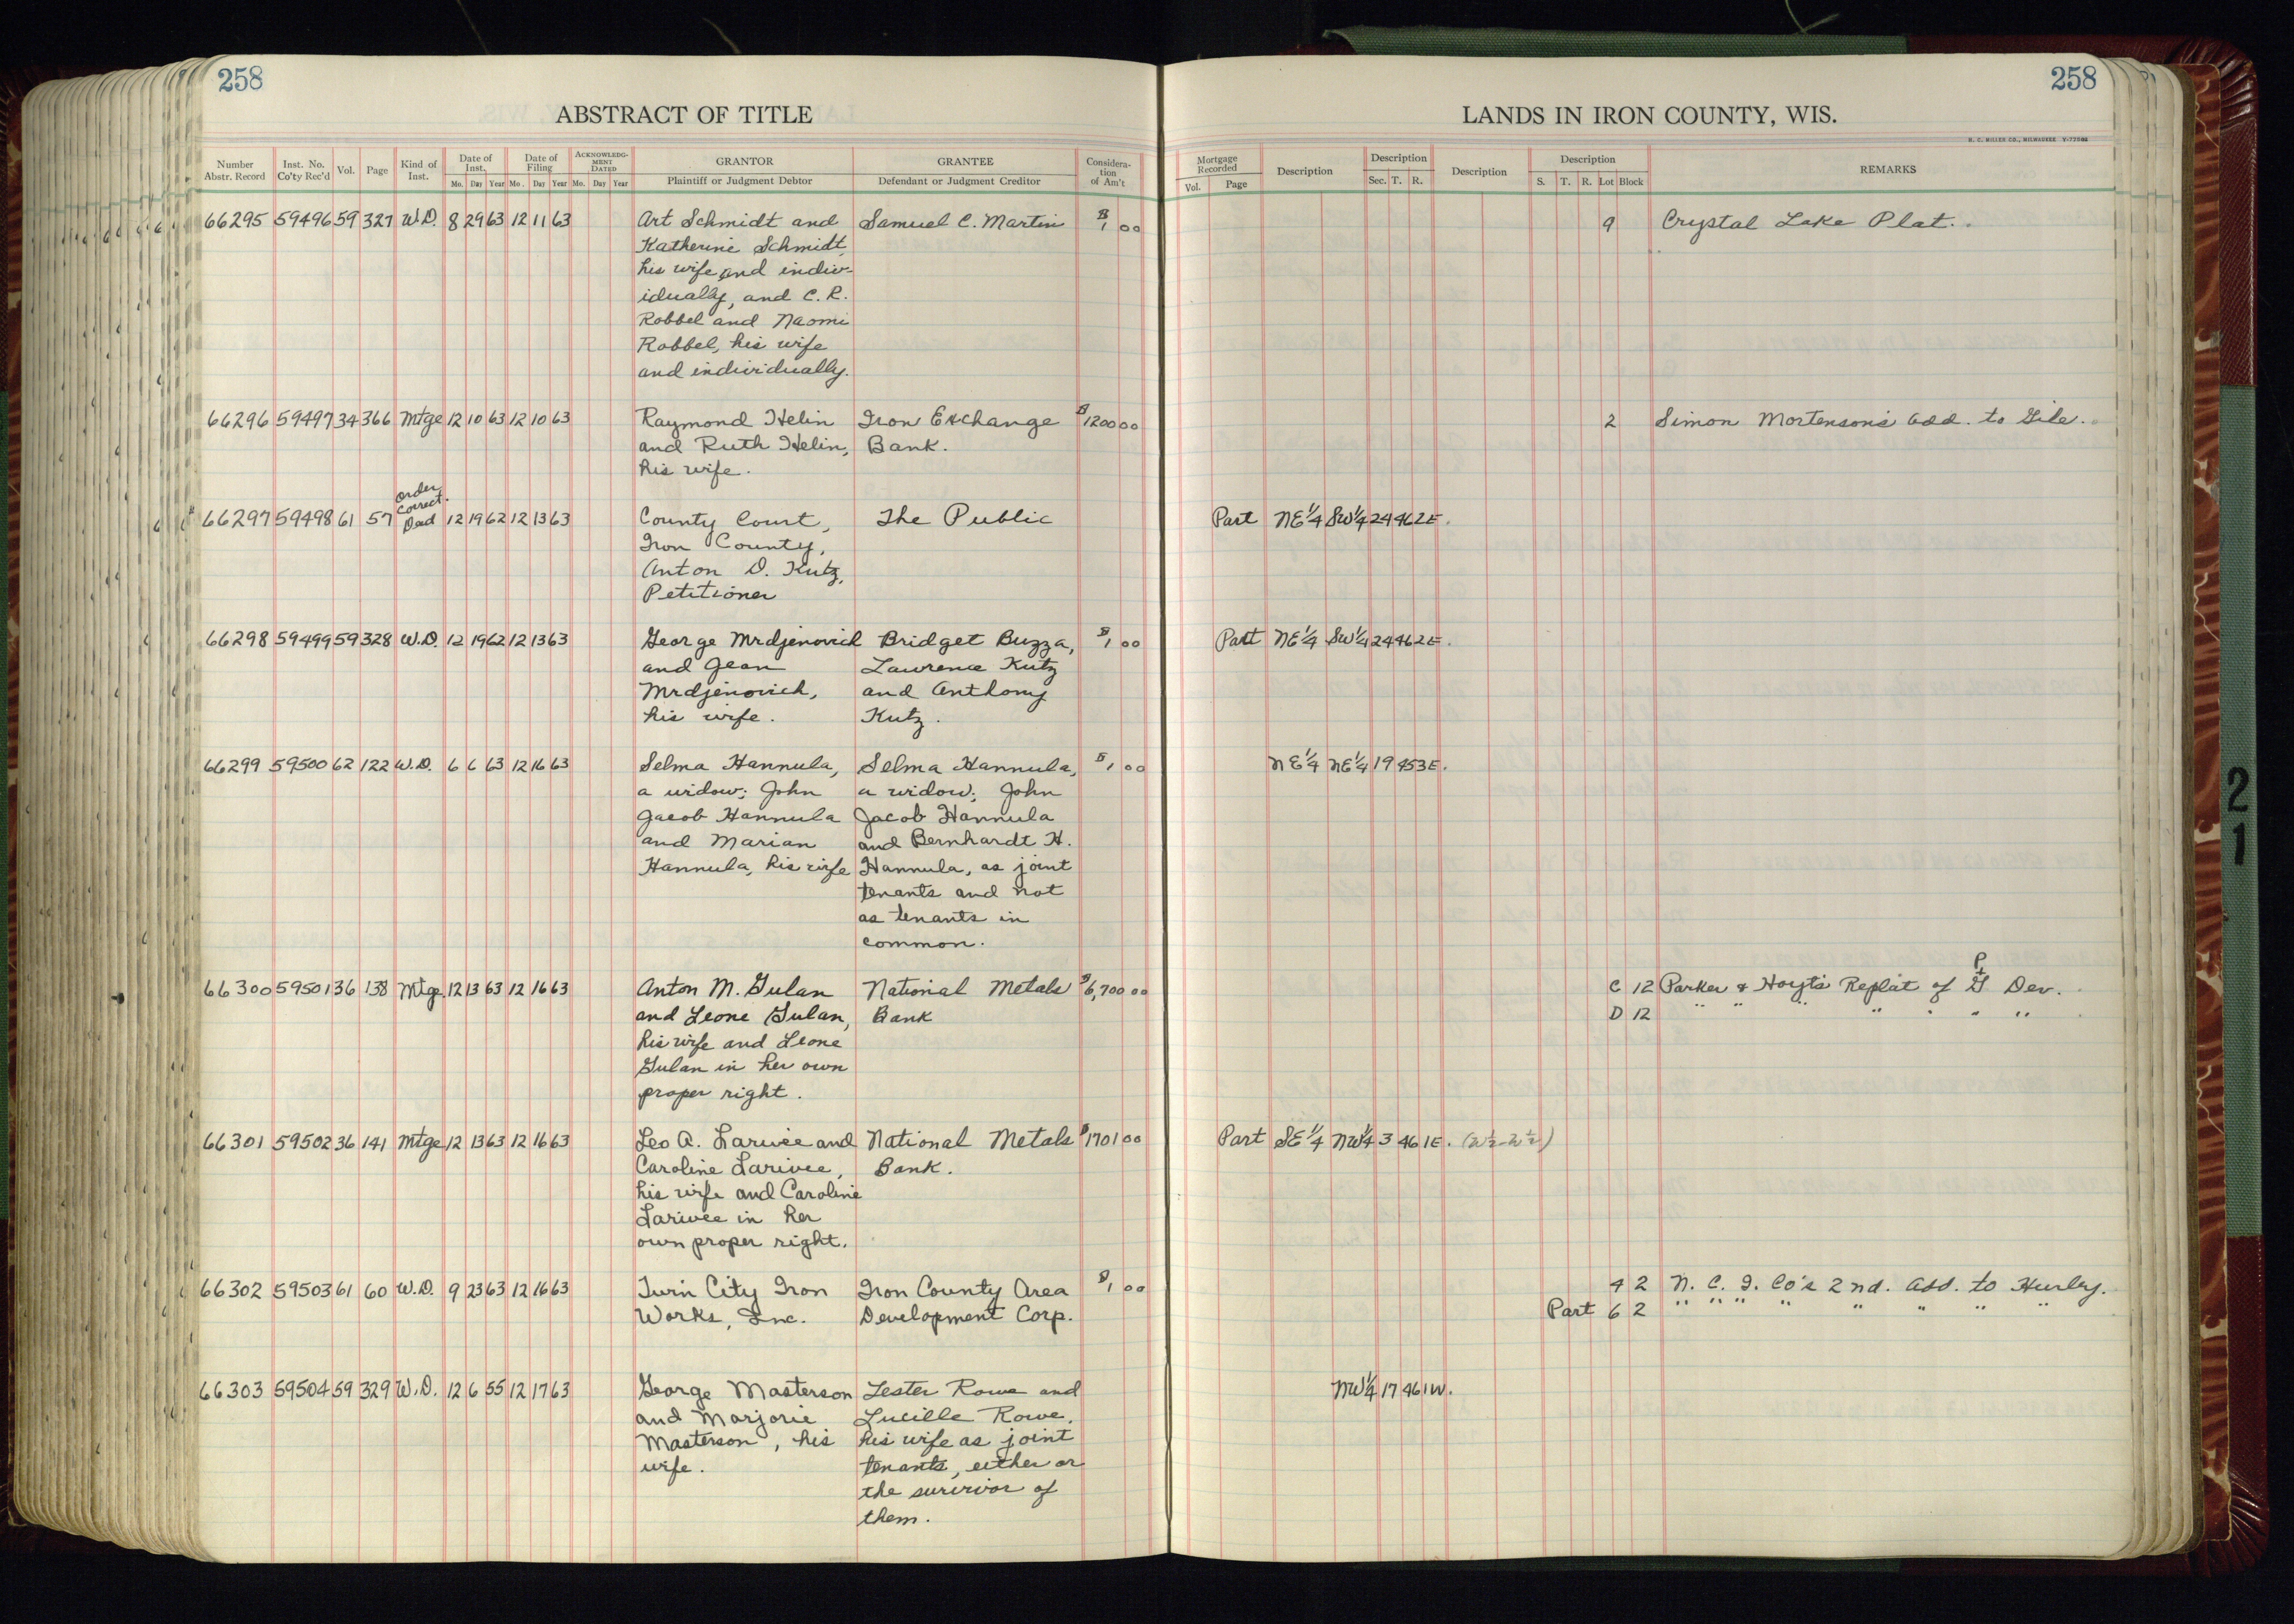 258
258
ABSTRACT OF TITLE
LANDS IN IRON COUNTY, WIS.
H. C. MILLER CO., MILWAUKEE
Number Abstr. Record Inst. No. Co'ty Rec'd Vol. Page Kind of Inst. Date of Inst. Mo. Day Year Date of Filing Mo. Day Year ACKNOWLEDGMENT DATED Mo. Day Year GRANTOR Plaintiff or Judgment Debtor GRANTEE Defendant or Judgment Creditor Considera-tion of Am't
Mortgage Recorded Vol. Page Description Description Sec. T. R. Description Description S. T. R. Lot Block REMARKS
66295 59496 59 327 W.D. 8 29 63 12 11 63 Art Schmidt and Samuel C. Martin $1 00 9 Crystal Lake Plat.
Katherine Schmidt
his wife and indiv-
idually, and C. R.
Robbel and Naomi
Robbel, his wife
and individually.
66296 59497 34 366 Mtge 12 10 63 12 10 63 Raymond Helin Iron Exchange $1200 00 2 Simon Mortenson's Add. to Gile.
and Ruth Helin, Bank.
his wife.
Order
Correct.
66297 59498 61 57 Deed 12 19 62 12 13 63 County Court, The Public Part NE 1/4 SW 1/4 24 46 2E.
Iron County,
Anton D. Kutz,
Petitioner
66298 59499 59 328 W.D. 12 19 62 12 13 63 George Mrdjenovich Bridget Buzza, $1 00 Part NE 1/4 SW 1/4 24 46 2E.
and Jean Lawrence Kutz
Mrdjenovich, and Anthony
his wife. Kutz.
66299 59500 62 122 W.D. 6 6 63 12 16 63 Selma Hannula, Selma Hannula, $1 00 NE 1/4 NE 1/4 19 45 3E.
a widow; John a widow; John
Jacob Hannula Jacob Hannula
and Marian and Bernhardt H.
Hannula, his wife Hannula, as joint
tenants and not
as tenants in
common.
P
+
66300 59501 36 138 Mtge 12 13 63 12 16 63 Anton M. Gulan National Metals $6,700 00 C 12 Parker & Hoyt's Replat of G Dev.
and Leone Gulan, Bank D 12 " " " " " " "
his wife and Leone
Gulan in her own
proper right.
66301 59502 36 141 Mtge 12 13 63 12 16 63 Leo A. Larivee and National Metals $1701 00 Part SE 1/4 NW 1/4 3 46 1E. (W½-W½)
Caroline Larivee, Bank.
his wife and Caroline
Larivee in her
own proper right.
66302 59503 61 60 W.D. 9 23 63 12 16 63 Twin City Iron Iron County Area $1 00 4 2 N. C. I. Co's 2nd. Add. to Hurley.
Works, Inc. Development Corp. Part 6 2 " " " " " " " "
66303 59504 59 329 W.D. 12 6 55 12 17 63 George Masterson Lester Rowe and NW 1/4 17 46 1W.
and Marjorie Lucille Rowe,
Masterson, his his wife as joint
wife. tenants, either or
the survivor of
them.
21